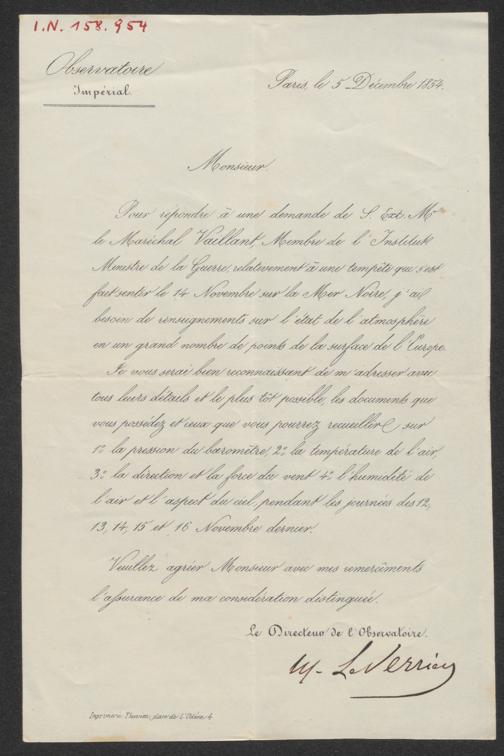 I.N. 158.954
Observatoire
Impérial.
Paris, le 5 Décembre 1854.
Monsieur.
Pour répondre à une demande de S. Exc. Mr
le Maréchal Vaillant, Membre de l'Institut
Ministre de la Guerre, relativement à une tempête qui s'est
fait sentir le 14 Novembre sur la Mer Noire, j'ai
besoin de renseignements sur l'état de l'atmosphère
en un grand nombre de points de la surface de l'Europe.
Je vous serai bien reconnaissant de m'adresser avec
tous leurs détails et le plus tôt possible, les documents que
vous possédez et ceux que vous pourrez recueiller sur
1º la pression du baromètre, 2º la température de l'air,
3º la direction et la force du vent 4º l'humidité de
l'air et l'aspect du ciel, pendant les journées des 12,
13, 14, 15 et 16 Novembre dernier.
Veuillez agréer Monsieur avec mes remerciments
l'assurance de ma considération distinguée.
Le Directeur de l'Observatoire.
LeVerrier
Imprimerie Thunot, place de l'Odéon, 4